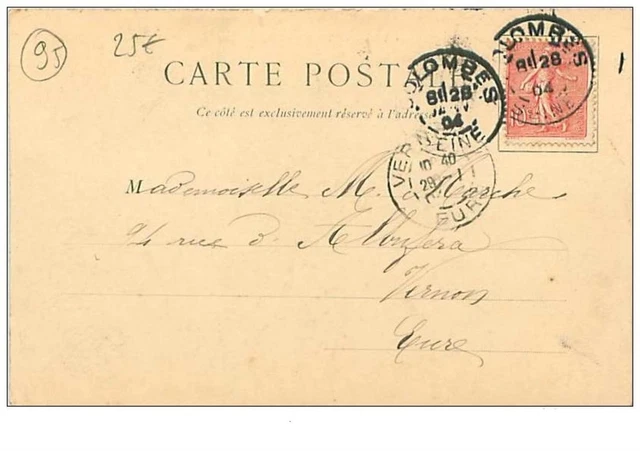 95
25€
CARTE POST
Ce côté est exclusivement réservé à l'adresse
COLOMBES
8E 28
04
SEINE
COLOMBES
8E 28
04
SEINE
VERN
40
29
EURE
Mademoiselle M. Marche
94 rue d'Albufera
Vernon
Eure